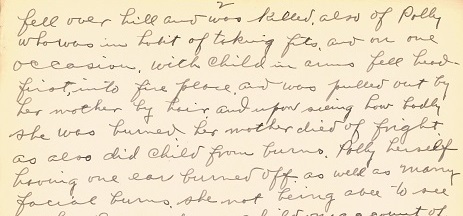 2
fell over hill and was killed. also of Polly
who was in habit of taking fits. and on one
occasion, with child in arms fell head-
first, into fire place, and was pulled out by
her mother by hair and upon seeing how badly
she was burned. her mother died of fright.
as also did child from burns. Polly herself
having one ear burned off as well as many
facial burns. she not being able to see
child